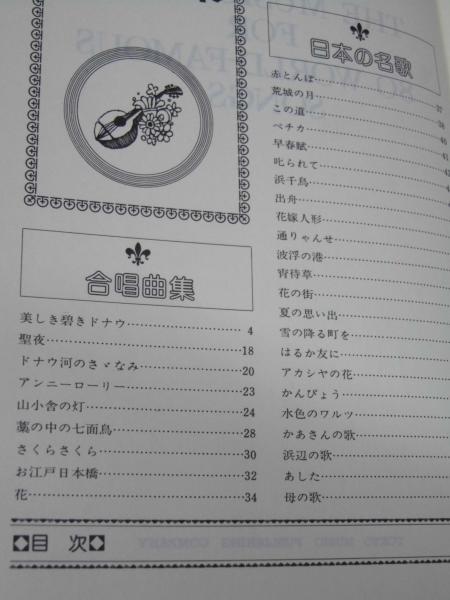 合唱曲集
美しき碧きドナウ 4
聖夜 18
ドナウ河のさゞなみ 20
アンニーローリー 23
山小舎の灯 24
藁の中の七面鳥 28
さくらさくら 30
お江戸日本橋 32
花 34
日本の名歌
赤とんぼ 37
荒城の月 38
この道
ペチカ 40
早春賦 41
叱られて
浜千鳥
出舟
花嫁人形
通りゃんせ
波浮の港
宵待草
花の街
夏の思い出
雪の降る町を
はるか友に
アカシヤの花
かんぴょう
水色のワルツ
かあさんの歌
浜辺の歌
あした
母の歌
目 次